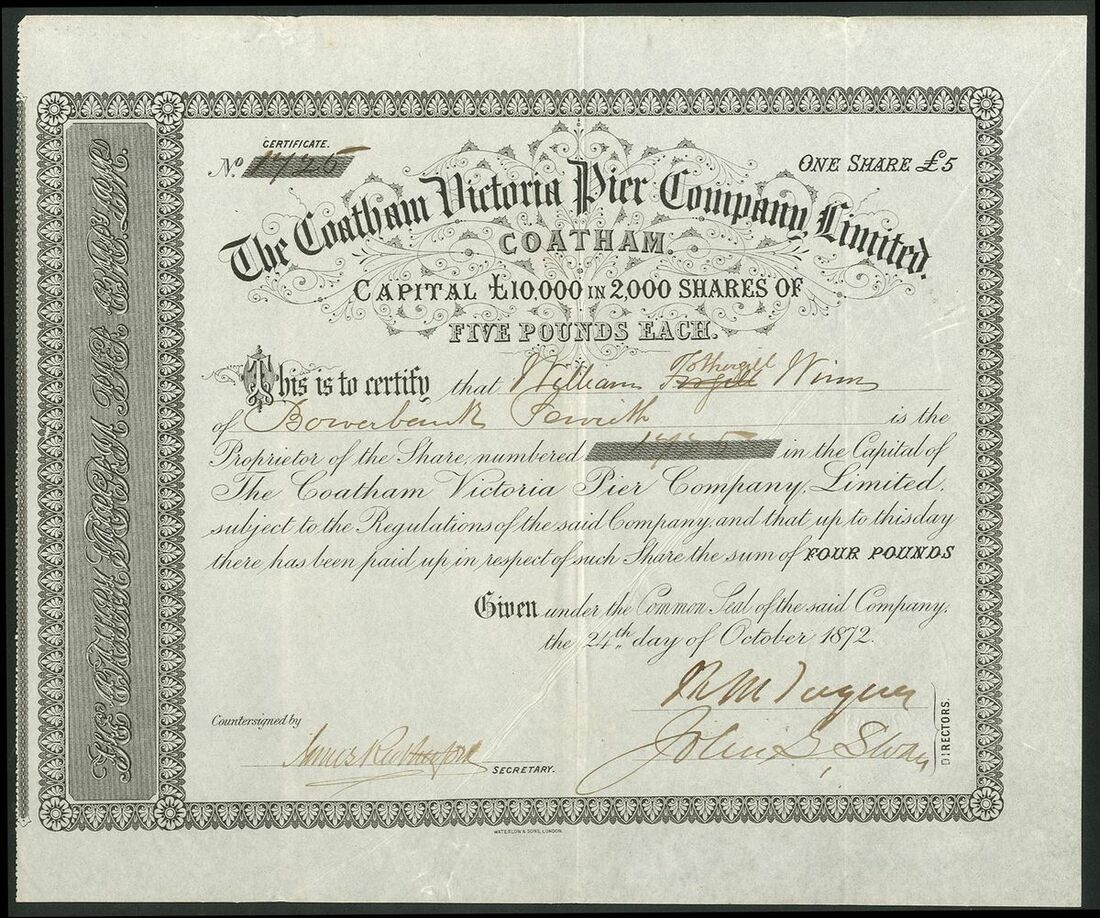 CERTIFICATE.
No 1725
ONE SHARE £5
The Coatham Victoria Pier Company, Limited.
COATHAM.
CAPITAL £10,000 IN 2,000 SHARES OF
FIVE POUNDS EACH.
This is to certify that William Fothergill Winn
of Bowerbank Penrith is the
Proprietor of the Share, numbered 1725 in the Capital of
The Coatham Victoria Pier Company, Limited,
subject to the Regulations of the said Company, and that up to this day
there has been paid up in respect of such Share the sum of FOUR POUNDS
Given under the Common Seal of the said Company,
the 24th day of October 1872.
Countersigned by
SECRETARY.
John G. Swan
DIRECTORS.
WATERLOW & SONS, LONDON.